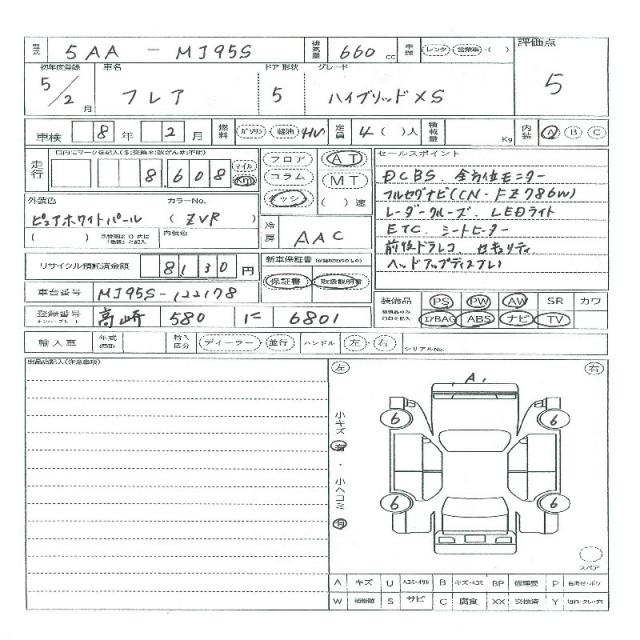 型式 5AA - MJ95S 排気量 660 cc 車歴 レンタ・営業車・( ) 評価点
初年度登録 車名 ドア 形状 グレード
5/2月 フレア 5 ハイブリッドXS 5
車検 8年 2月 燃料 ガソリン・軽油 HV 定員 4( )人 積載量 Kg 内装 A B C
走行 8,608 マイル Km フロア AT セールスポイント
コラム MT DCBS. 全方位モニター
外装色 カラーNo. インパネ ( )速 フルセグナビ(CN-FZ786W)
ピュアホワイトパール (ZVR) レーダークルーズ. LEDライト
( ) 内装色 冷房 AAC ETC. シートヒーター
前後ドラレコ. セキュリティ
リサイクル預託済金額 8130円 新車保証書 ヘッドアップディスプレイ
保証書 取扱説明書
車台番号 MJ95S-122178 装備品 PS PW AW SR カワ
登録番号 高崎 580 に 6801 エアBAG ABS ナビ TV
輸入車 年式 輸入区分 ディーラー・並行 ハンドル 左・右 シリアルNo.
出品店記入(注意事項) 左 右
A
6 6
小キズ 有・小ヘコミ 有
6 6
スペア
A キズ U B キズ・ヘコミ BP 修理要 P
W 補修跡 S サビ C 腐食 XX 交換済 Y